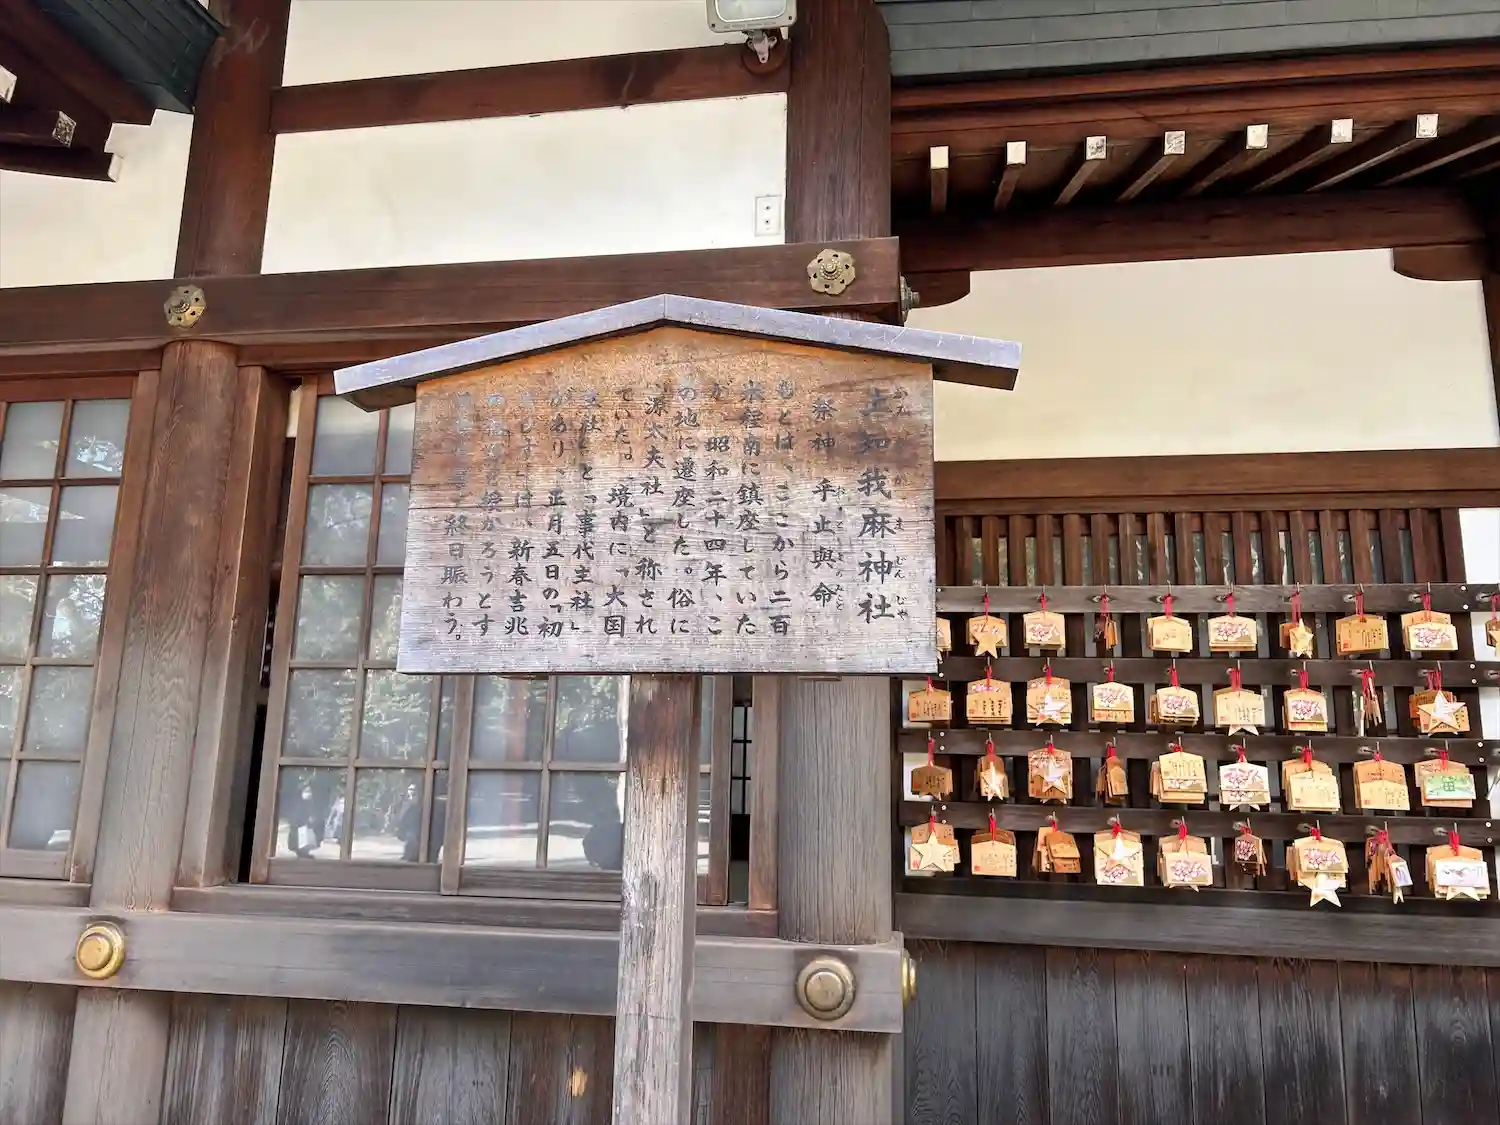 上知我麻神社
かみ ち か ま じん じゃ
祭神 乎止與命
もとは、ここから二百
米程南に鎮座していた
が、昭和二十四年、こ
の地に遷座した。俗に
「源太夫社」と称され
ていた。境内に「大国
主社」と「事代主社」
があり、正月五日の「初
す」は、新春吉兆
授かろうとす
終日賑わう。